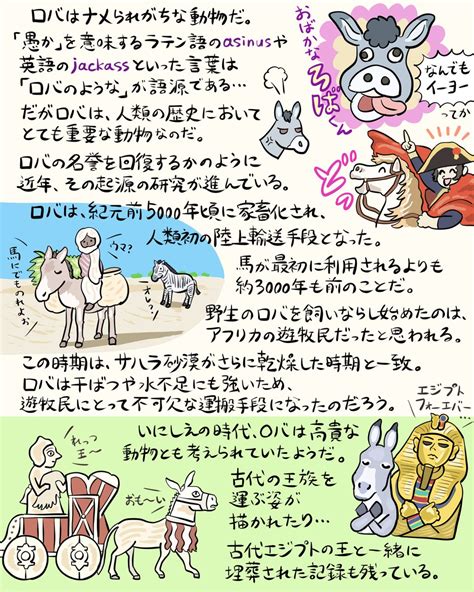 ロバはナメられがちな動物だ。
「愚か」を意味するラテン語のasinusや
英語のjackassといった言葉は
「ロバのような」が語源である…
だがロバは、人類の歴史において
とても重要な動物なのだ。
おばかな
ろばくん
なんでも
イーヨー
ってか
ロバの名誉を回復するかのように
近年、その起源の研究が進んでいる。
どーの
ロバは、紀元前5000年頃に家畜化され、
人類初の陸上輸送手段となった。
ウマ?
オレ?
馬にでものれよお
馬が最初に利用されるよりも
約3000年も前のことだ。
野生のロバを飼いならし始めたのは、
アフリカの遊牧民だったと思われる。
この時期は、サハラ砂漠がさらに乾燥した時期と一致。
ロバは干ばつや水不足にも強いため、
遊牧民にとって不可欠な運搬手段になったのだろう。
エジプト
フォーエバー…
いにしえの時代、ロバは高貴な
動物とも考えられていたようだ。
れっつ
王〜
おも〜い
古代の王族を
運ぶ姿が
描かれたり…
古代エジプトの王と一緒に
埋葬された記録も残っている。